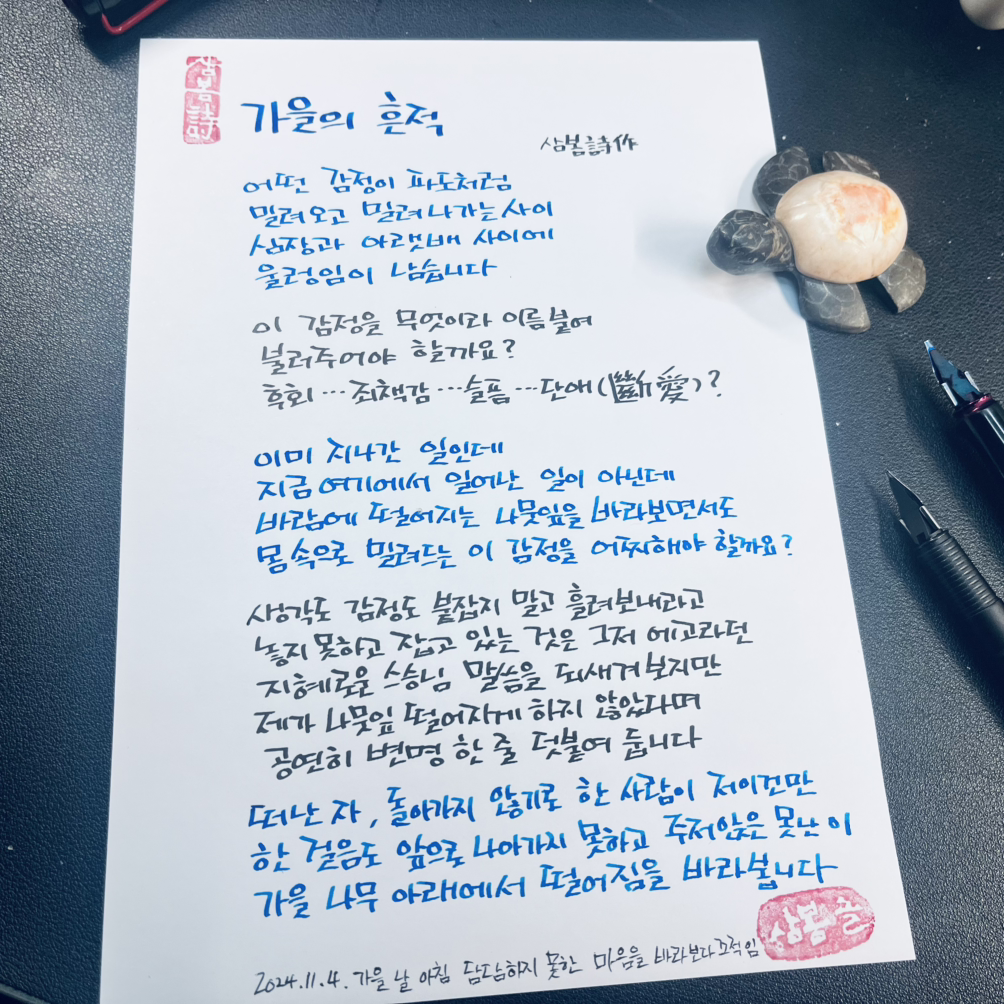 삼봄詩
가을의 흔적
삼봄詩作
어떤 감정이 파도처럼
밀려오고 밀려나가는 사이
심장과 아랫배 사이에
울렁임이 남습니다
이 감정을 무엇이라 이름붙여
불러주어야 할까요?
후회…죄책감…슬픔…단애(斷愛)?
이미 지나간 일인데
지금 여기에서 일어난 일이 아닌데
바람에 떨어지는 나뭇잎을 바라보면서도
몸 속으로 밀려드는 이 감정을 어찌해야 할까요?
생각도 감정도 붙잡지 말고 흘려보내라고
놓지 못하고 잡고 있는 것은 그저 에고라던
지혜로운 스승님 말씀을 되새겨 보지만
제가 나뭇잎 떨어지게 하지 않았다며
공연히 변명 한 줄 덧붙여 둡니다
떠난 자, 돌아가지 않기로 한 사람이 저이건만
한 걸음도 앞으로 나아가지 못하고 주저앉은 못난 이
가을 나무 아래에서 떨어짐을 바라봅니다
삼봄
2024.11.4. 가을 날 아침 담담하지 못한 마음을 바라보다 끄적임